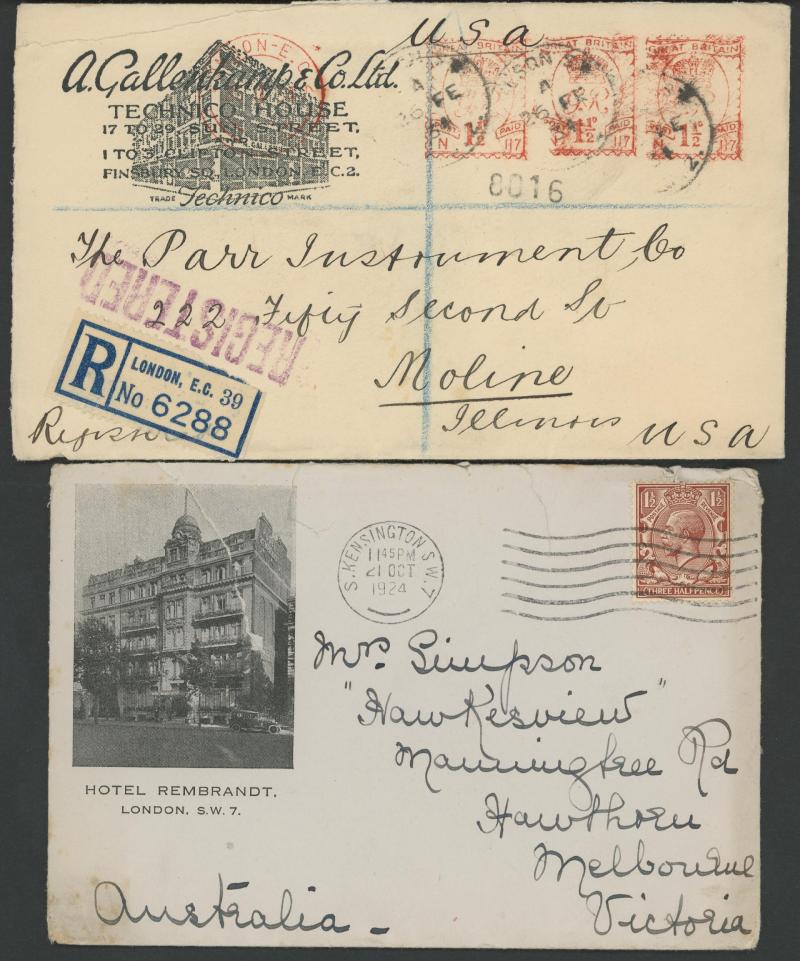 USA
A. Gallenkamp & Co. Ltd.
TECHNICO HOUSE
17 TO 29, SUN STREET,
1 TO 3, CLIFTON STREET,
FINSBURY SQ. LONDON, E.C.2.
TRADE Technico MARK
GREAT BRITAIN
POSTAGE PAID
N 1½P 117
GREAT BRITAIN
1½P 117
GREAT BRITAIN
N 1½P 117
A
26 FE
8016
The Parr Instrument, Co
222 Fifty Second St
Moline
Illinois
USA
REGISTERED
R LONDON, E.C. 39
No 6288
HOTEL REMBRANDT,
LONDON, S.W. 7.
S. KENSINGTON S.W.7
11 45 PM
21 OCT
1924
1½ 1½
POSTAGE REVENUE
THREE HALFPENCE
Mrs. Simpson
"Hawkesview"
Manningtree Rd
Hawthorn
Melbourne
Victoria
Australia -